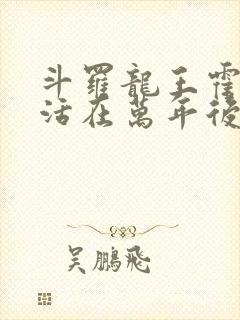 斗羅龍王霍
活在萬年後
吳鵬飛